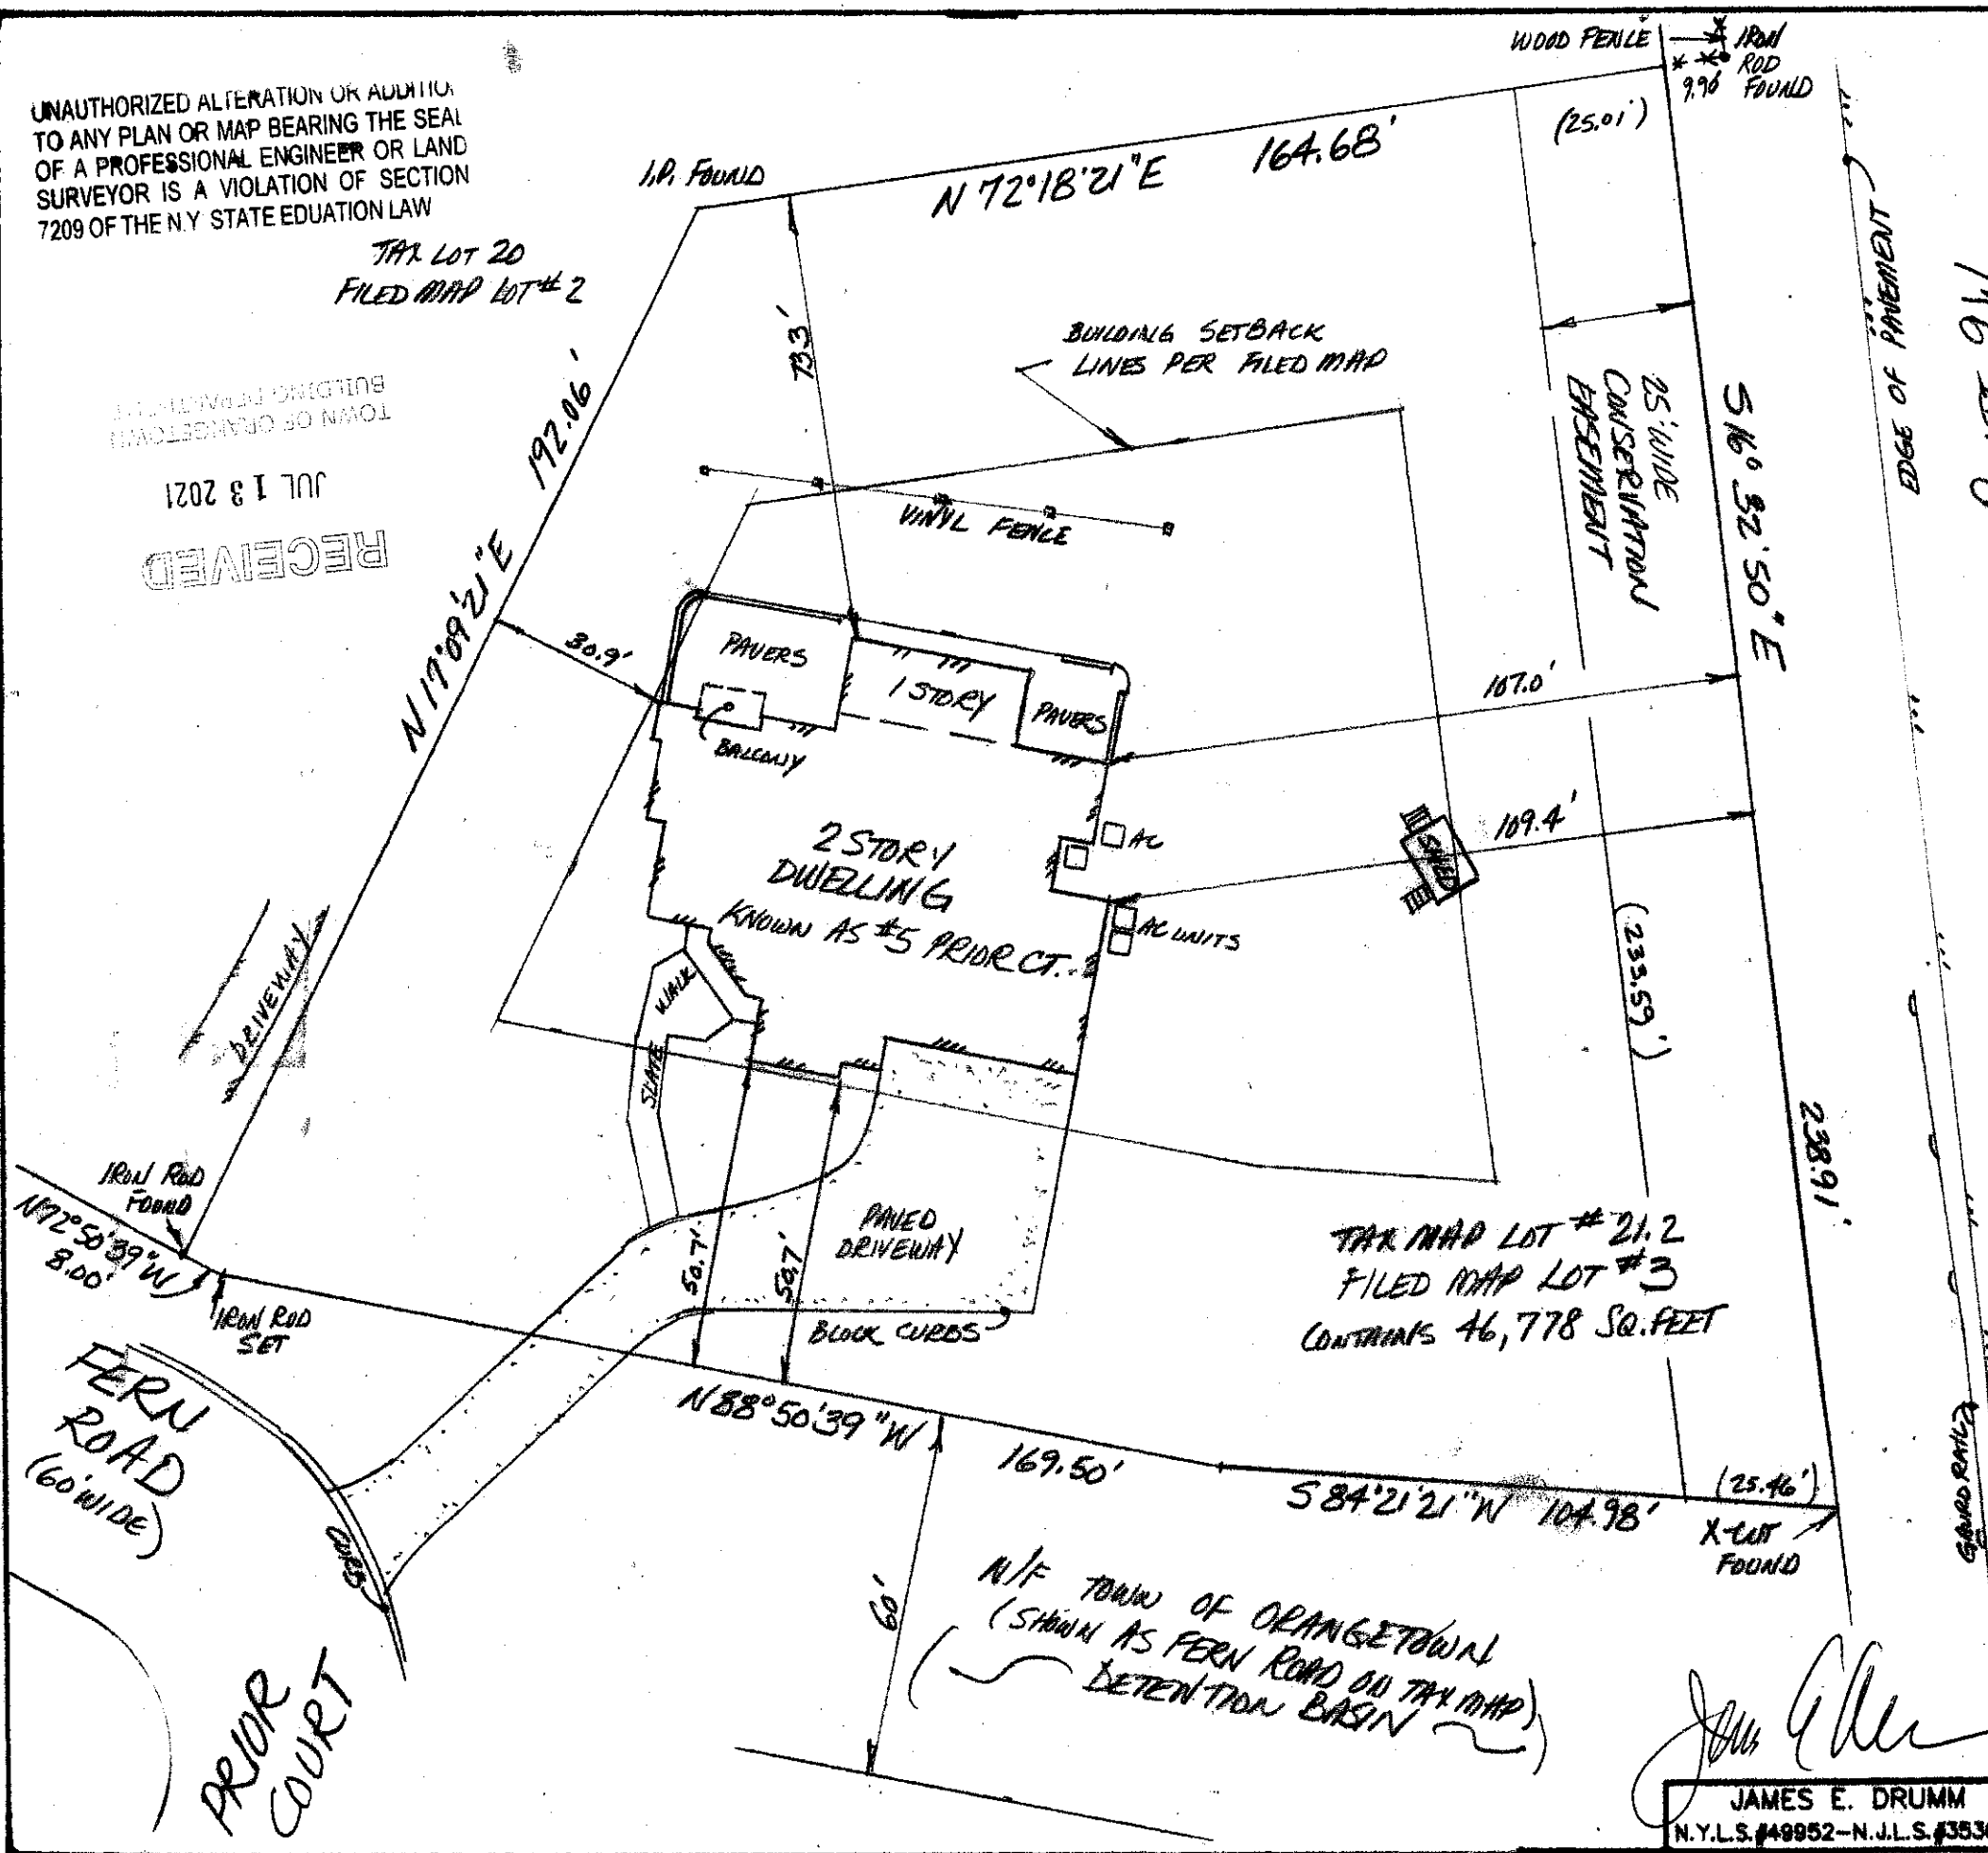 UNAUTHORIZED ALTERATION OR ADDITIO
TO ANY PLAN OR MAP BEARING THE SEAL
OF A PROFESSIONAL ENGINEER OR LAND
SURVEYOR IS A VIOLATION OF SECTION
7209 OF THE N.Y STATE EDUATION LAW
TAX LOT 20
FILED MAP LOT # 2
TOWN OF ORANGETOWN
BUILDING DEPARTMENT
JUL 13 2021
RECEIVED
WOOD FENCE
IRON
ROD
FOUND
9.96
(25.01')
I.P. FOUND
N 72°18'21"E 164.68'
EDGE OF PAVEMENT
73.3'
BUILDING SETBACK
LINES PER FILED MAP
25' WIDE
CONSERVATION
EASEMENT
S 16° 32' 50" E
192.06'
N 17°09'21"E
VINYL FENCE
30.9'
PAVERS
1 STORY
PAVERS
BALCONY
107.0'
2 STORY
DWELLING
KNOWN AS #5 PRIOR CT.
AC
AC UNITS
SHED
109.4'
(233.59')
238.91'
DRIVEWAY
WALK
SLATE
IRON ROD
FOUND
N72°50'39"W
8.00'
IRON ROD
SET
50.7'
50.7'
PAVED
DRIVEWAY
BLOCK CURBS
TAX MAP LOT # 21.2
FILED MAP LOT #3
CONTAINS 46,778 SQ.FEET
FERN
ROAD
(60' WIDE)
CURB
N88°50'39"W 169.50'
S 84°21'21"W 104.98'
(25.46')
X-CUT
FOUND
GUARDRAIL
60'
N/F TOWN OF ORANGETOWN
(SHOWN AS FERN ROAD ON TAX MAP)
DETENTION BASIN
PRIOR
COURT
JAMES E. DRUMM
N.Y.L.S.#49952-N.J.L.S.#353